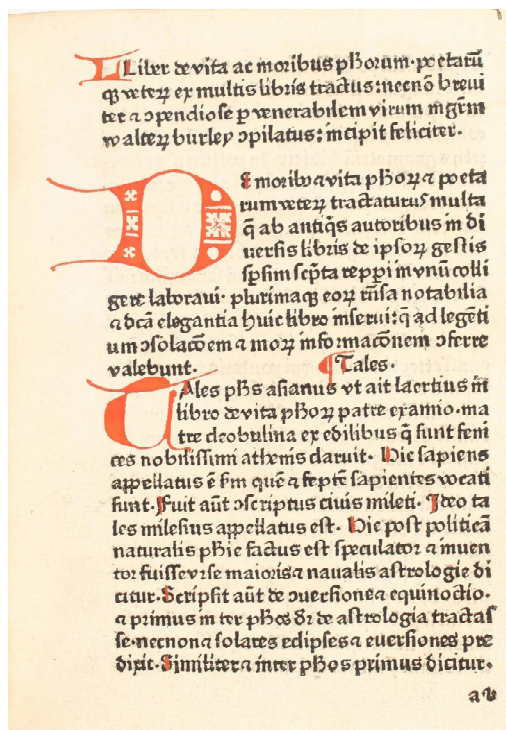 Liber de vita ac moribus pħorum·poetarū
qꝫ veterꝝ ex multis libris tractus:necnō brevi
ter ⁊ ꝯpendiose ꝑ venerabilem virum mgr̄m
walterꝝ burley ꝯpilatus: incipit feliciter.
DE moribꝰ ⁊ vita pħorꝝ ⁊ poeta
rum veterꝝ tractaturus multa
q̄ ab antiq̄s autoribus in di
uersis libris de ipsorꝝ gestis
sꝑsim scṗta repperi in vnū colli
gere laboraui· plurimaqꝫ eorꝝ rn̄sa notabilia
⁊ dc̄a elegantia huic libro inserui: q̄ ad legēti
um ꝯsolac̄oem ⁊ morꝝ informac̄onem ꝯferre
valebunt.
Tales.
TAles pħs asianus vt ait laertius in
libro de vita pħorꝝ patre examio·ma
tre cleobulina ex edilibus q̄ sunt feni
ces nobilissimi athenis claruit. Hic sapiens
appellatus ē ẜm quē ⁊ septē sapientes vocati
sunt· Fuit aūt ꝯscriptus ciuis mileti. Ideo ta
les milesius appellatus est. Hic post politicā
naturalis pħie factus est speculator ⁊ inuen
tor fuisse vrse maioris ⁊ naualis astrologie di
citur. Scripsit aūt de ꝯuersione ⁊ equinoctio.
⁊ primus inter pħos dr̄ de astrologia tractas
se·necnon ⁊ solares eclipses ⁊ euersiones pre
dixit. Similiter ⁊ inter pħos primus dicitur.